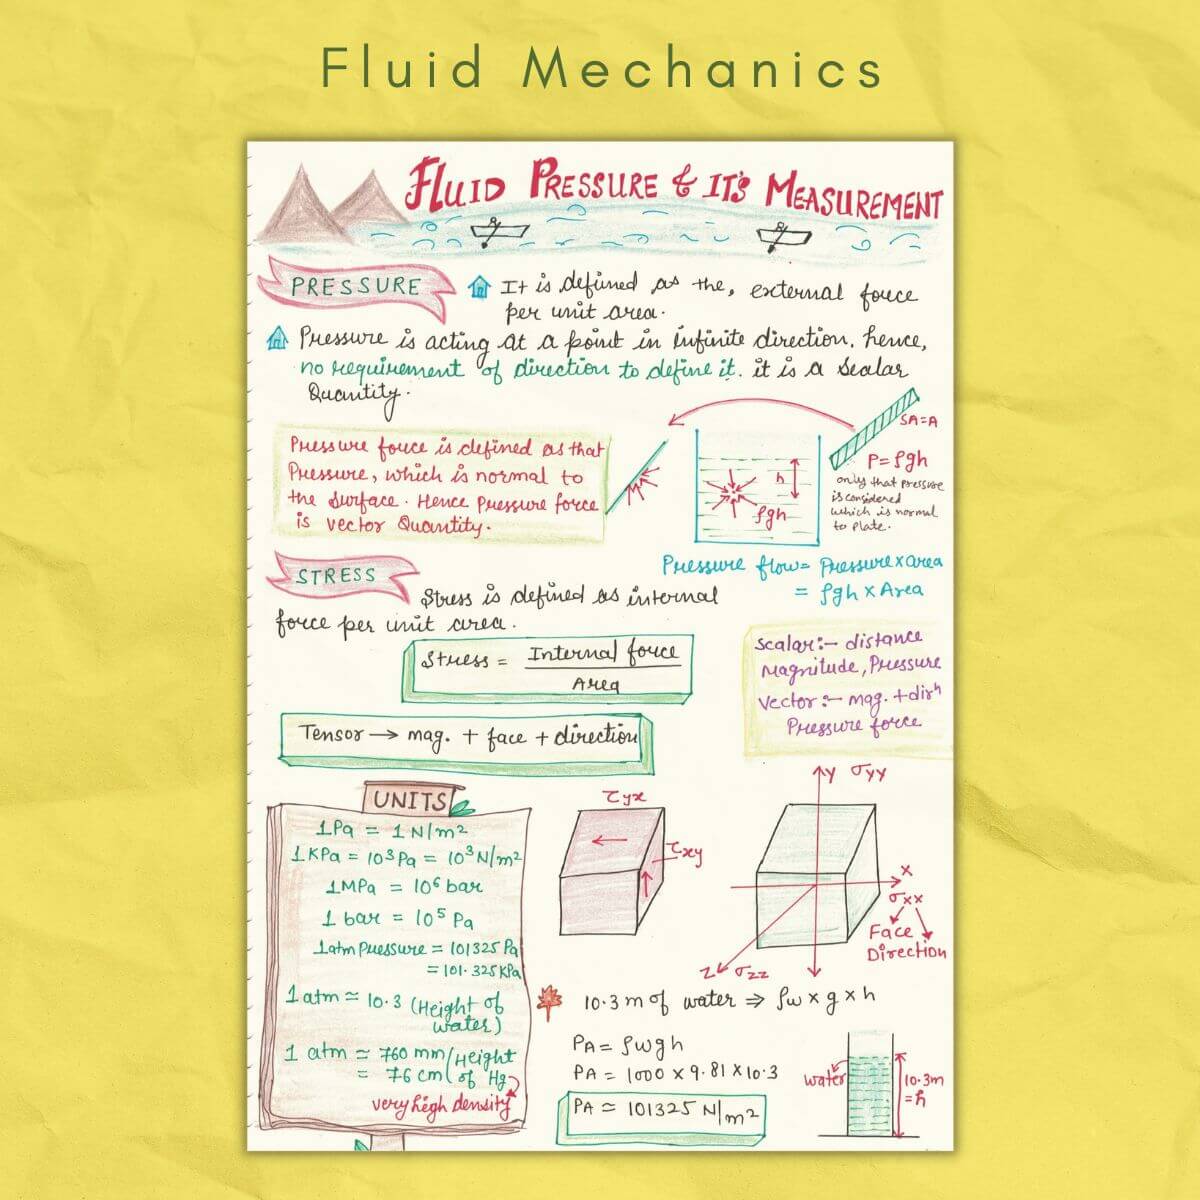 Fluid Mechanics
FLUID PRESSURE & IT'S MEASUREMENT
PRESSURE
It is defined as the, external force
per unit area.
Pressure is acting at a point in infinite direction. hence,
no requirement of direction to define it. it is a scalar
Quantity.
Pressure force is defined as that
Pressure, which is normal to
the surface. Hence pressure force
is vector Quantity.
h
ρgh
SA=A
P=ρgh
only that pressure
is considered
which is normal
to plate.
Pressure flow= Pressure×area
= ρgh × Area
STRESS
Stress is defined as internal
force per unit area.
Stress = Internal force
Area
Scalar:- distance
Magnitude, Pressure
Vector:- mag. +dirⁿ
Pressure force
Tensor → mag. + face + direction
UNITS
1Pa = 1N/m²
1KPa = 10³Pa = 10³N/m²
1MPa = 10⁶ bar
1 bar = 10⁵ Pa
1atm pressure = 101325 Pa
= 101.325KPa
1 atm ≃ 10.3 (Height of
water)
1 atm ≃ 760 mm (Height
= 76 cm of Hg)
very high density
τyx
τxy
Y σyy
X
σxx
Face
Direction
Z σzz
10.3 m of water ⇒ ρw × g × h
PA = ρwgh
PA = 1000 × 9.81 × 10.3
PA ≃ 101325 N/m²
water
10.3m
=h